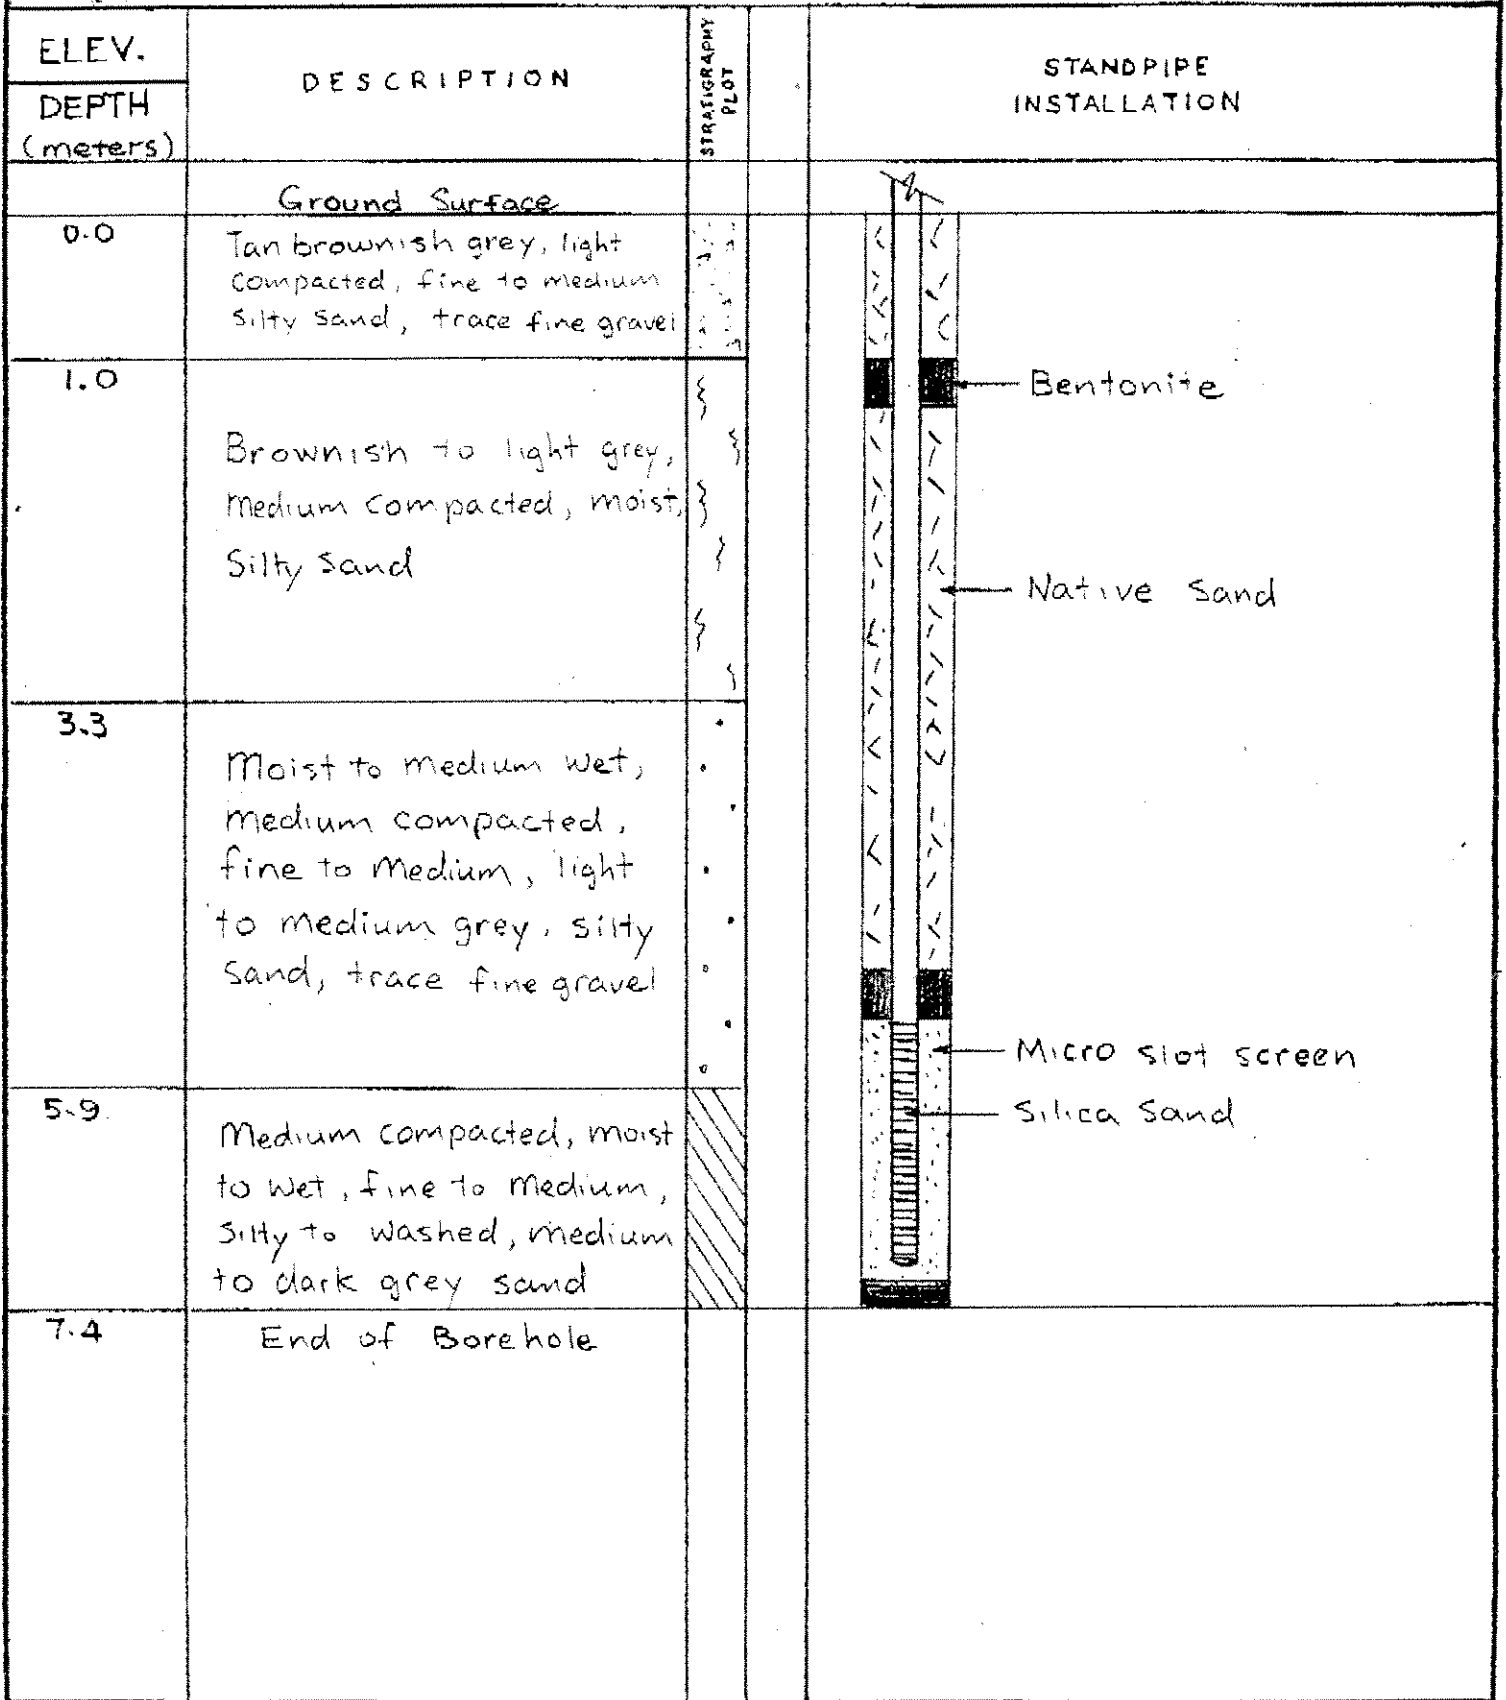 ELEV.
DEPTH
(meters)
DESCRIPTION
STRATIGRAPHY
PLOT
STANDPIPE
INSTALLATION
Ground Surface
0.0
Tan brownish grey, light
compacted, fine to medium
silty sand, trace fine gravel
1.0
Brownish to light grey,
medium compacted, moist,
silty sand
3.3
Moist to medium wet,
medium compacted,
fine to medium, light
to medium grey, silty
sand, trace fine gravel
5.9
Medium compacted, moist
to wet, fine to medium,
silty to washed, medium
to dark grey sand
7.4
End of Borehole
Bentonite
Native Sand
Micro slot screen
Silica Sand